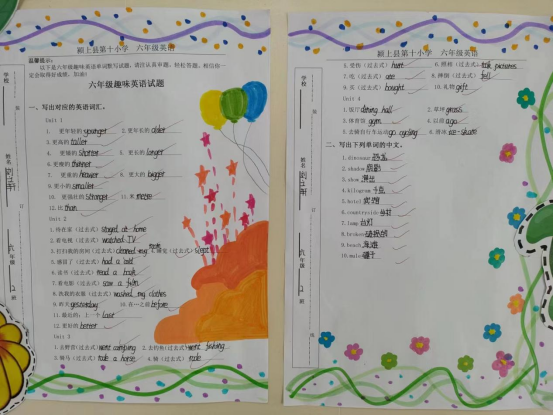 颍上县第十小学 六年级英语
温馨提示：
以下是六年级趣味英语单词默写试题，请过认真审题，轻松答题，相信你一定会取得好成绩，加油！
六年级趣味英语试题
一、写出对应的英语词汇。
Unit 1
1. 更年轻的 younger 2. 更年长的 older
3. 更高的 taller
4. 更矮的 shorter 5. 更长的 longer
6. 更瘦的 thinner
7. 更重的 heavier 8. 更大的 bigger
9. 更小的 smaller
10. 更强壮的 stronger 11. 米 metre
12. 比 than
Unit 2
1. 待在家（过去式）stayed at home
2. 看电视（过去式）watched TV
3. 打扫我的房间（过去式）cleaned my room 4. 睡觉（过去式）slept
5. 感冒了（过去式）had a cold
6. 看书（过去式）read a book
7. 看电影（过去式）saw a film
8. 洗我的衣服（过去式）washed my clothes
9. 昨天 yesterday 10. 在…之前 before
11. 最近的；上一个 last
12. 更好的 better
Unit 3
1. 去野营（过去式）went camping 2. 去钓鱼（过去式）went fishing
3. 骑马（过去式）rode a horse 4. 骑（过去式）rode
学校
姓名
六年级 2 班
颍上县第十小学 六年级英语
5. 受伤（过去式）hurt 6. 照相（过去式）took pictures
7. 吃（过去式）ate 8. 摔倒（过去式）fell
9. 买（过去式）bought 10. 礼物 gift
Unit 4
1. 饭厅 dining hall 2. 草坪 grass
3. 体育馆 gym 4. 以前 ago
5. 去骑自行车运动 go cycling 6. 滑冰 ice-skate
二、写出下列单词的中文。
1. dinosaur 恐龙
2. shadow 阴影
3. show 演出
4. kilogram 千克
5. hotel 宾馆
6. countryside 乡村
7. lamp 台灯
8. broken 破损的
9. beach 海滩
10. mule 骡子
学校
姓名
六年级 2 班